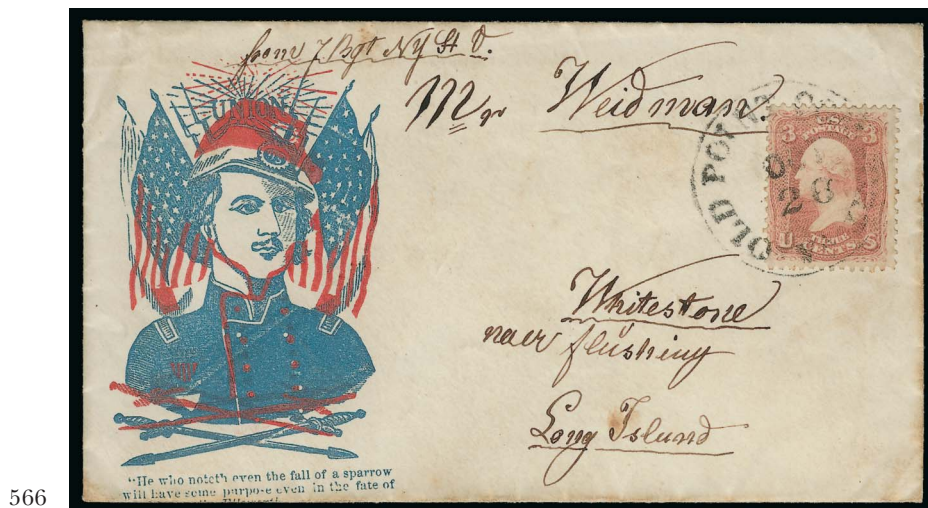 from 7 Rgt NY St V.
Mr Weidman.
UNION
OLD POINT
3 U.S. 3
POSTAGE
26
U THREE S
CENTS
Whitestone
naer flushing
Long Island
"He who noteth even the fall of a sparrow
will have some purpose even in the fate of
566